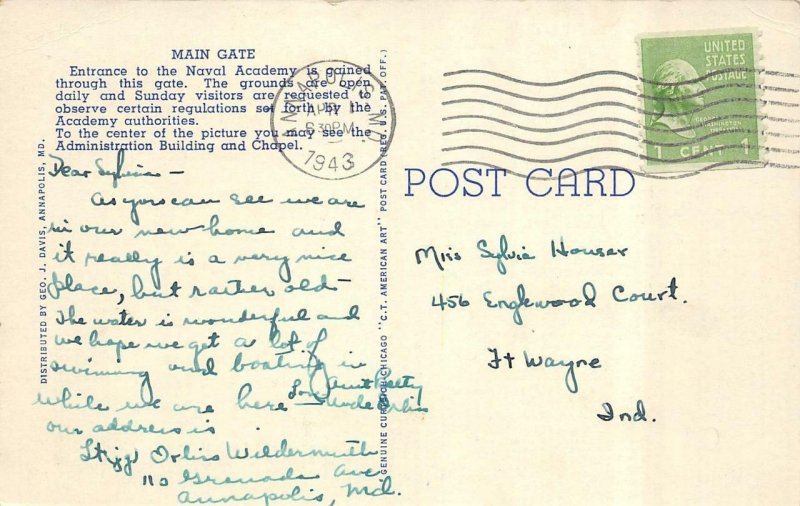 MAIN GATE
Entrance to the Naval Academy is gained
through this gate. The grounds are open
daily and Sunday visitors are requested to
observe certain regulations set forth by the
Academy authorities.
To the center of the picture you may see the
Administration Building and Chapel.
DISTRIBUTED BY GEO. J. DAVIS, ANNAPOLIS, MD.
Dear Sylvia —
As you can see we are
in our new home and
it really is a very nice
place, but rather old -
The water is wonderful and
we hope we get a lot of
swimming and boating in
while we are here —
Love Aunt Betty
Uncle Orliss
our address is
Orliss Wildermuth
110 Grenada Ave
Annapolis, Md.
GENUINE CURTEICH-CHICAGO "C.T. AMERICAN ART" POST CARD (REG. U.S. PAT. OFF.)
ANNAPOLIS MD.
APR 1
830PM
1943
UNITED
STATES
POSTAGE
GEORGE
WASHINGTON
1 CENT 1
POST CARD
Miss Sylvia Houser
456 Englewood Court.
Ft Wayne
Ind.